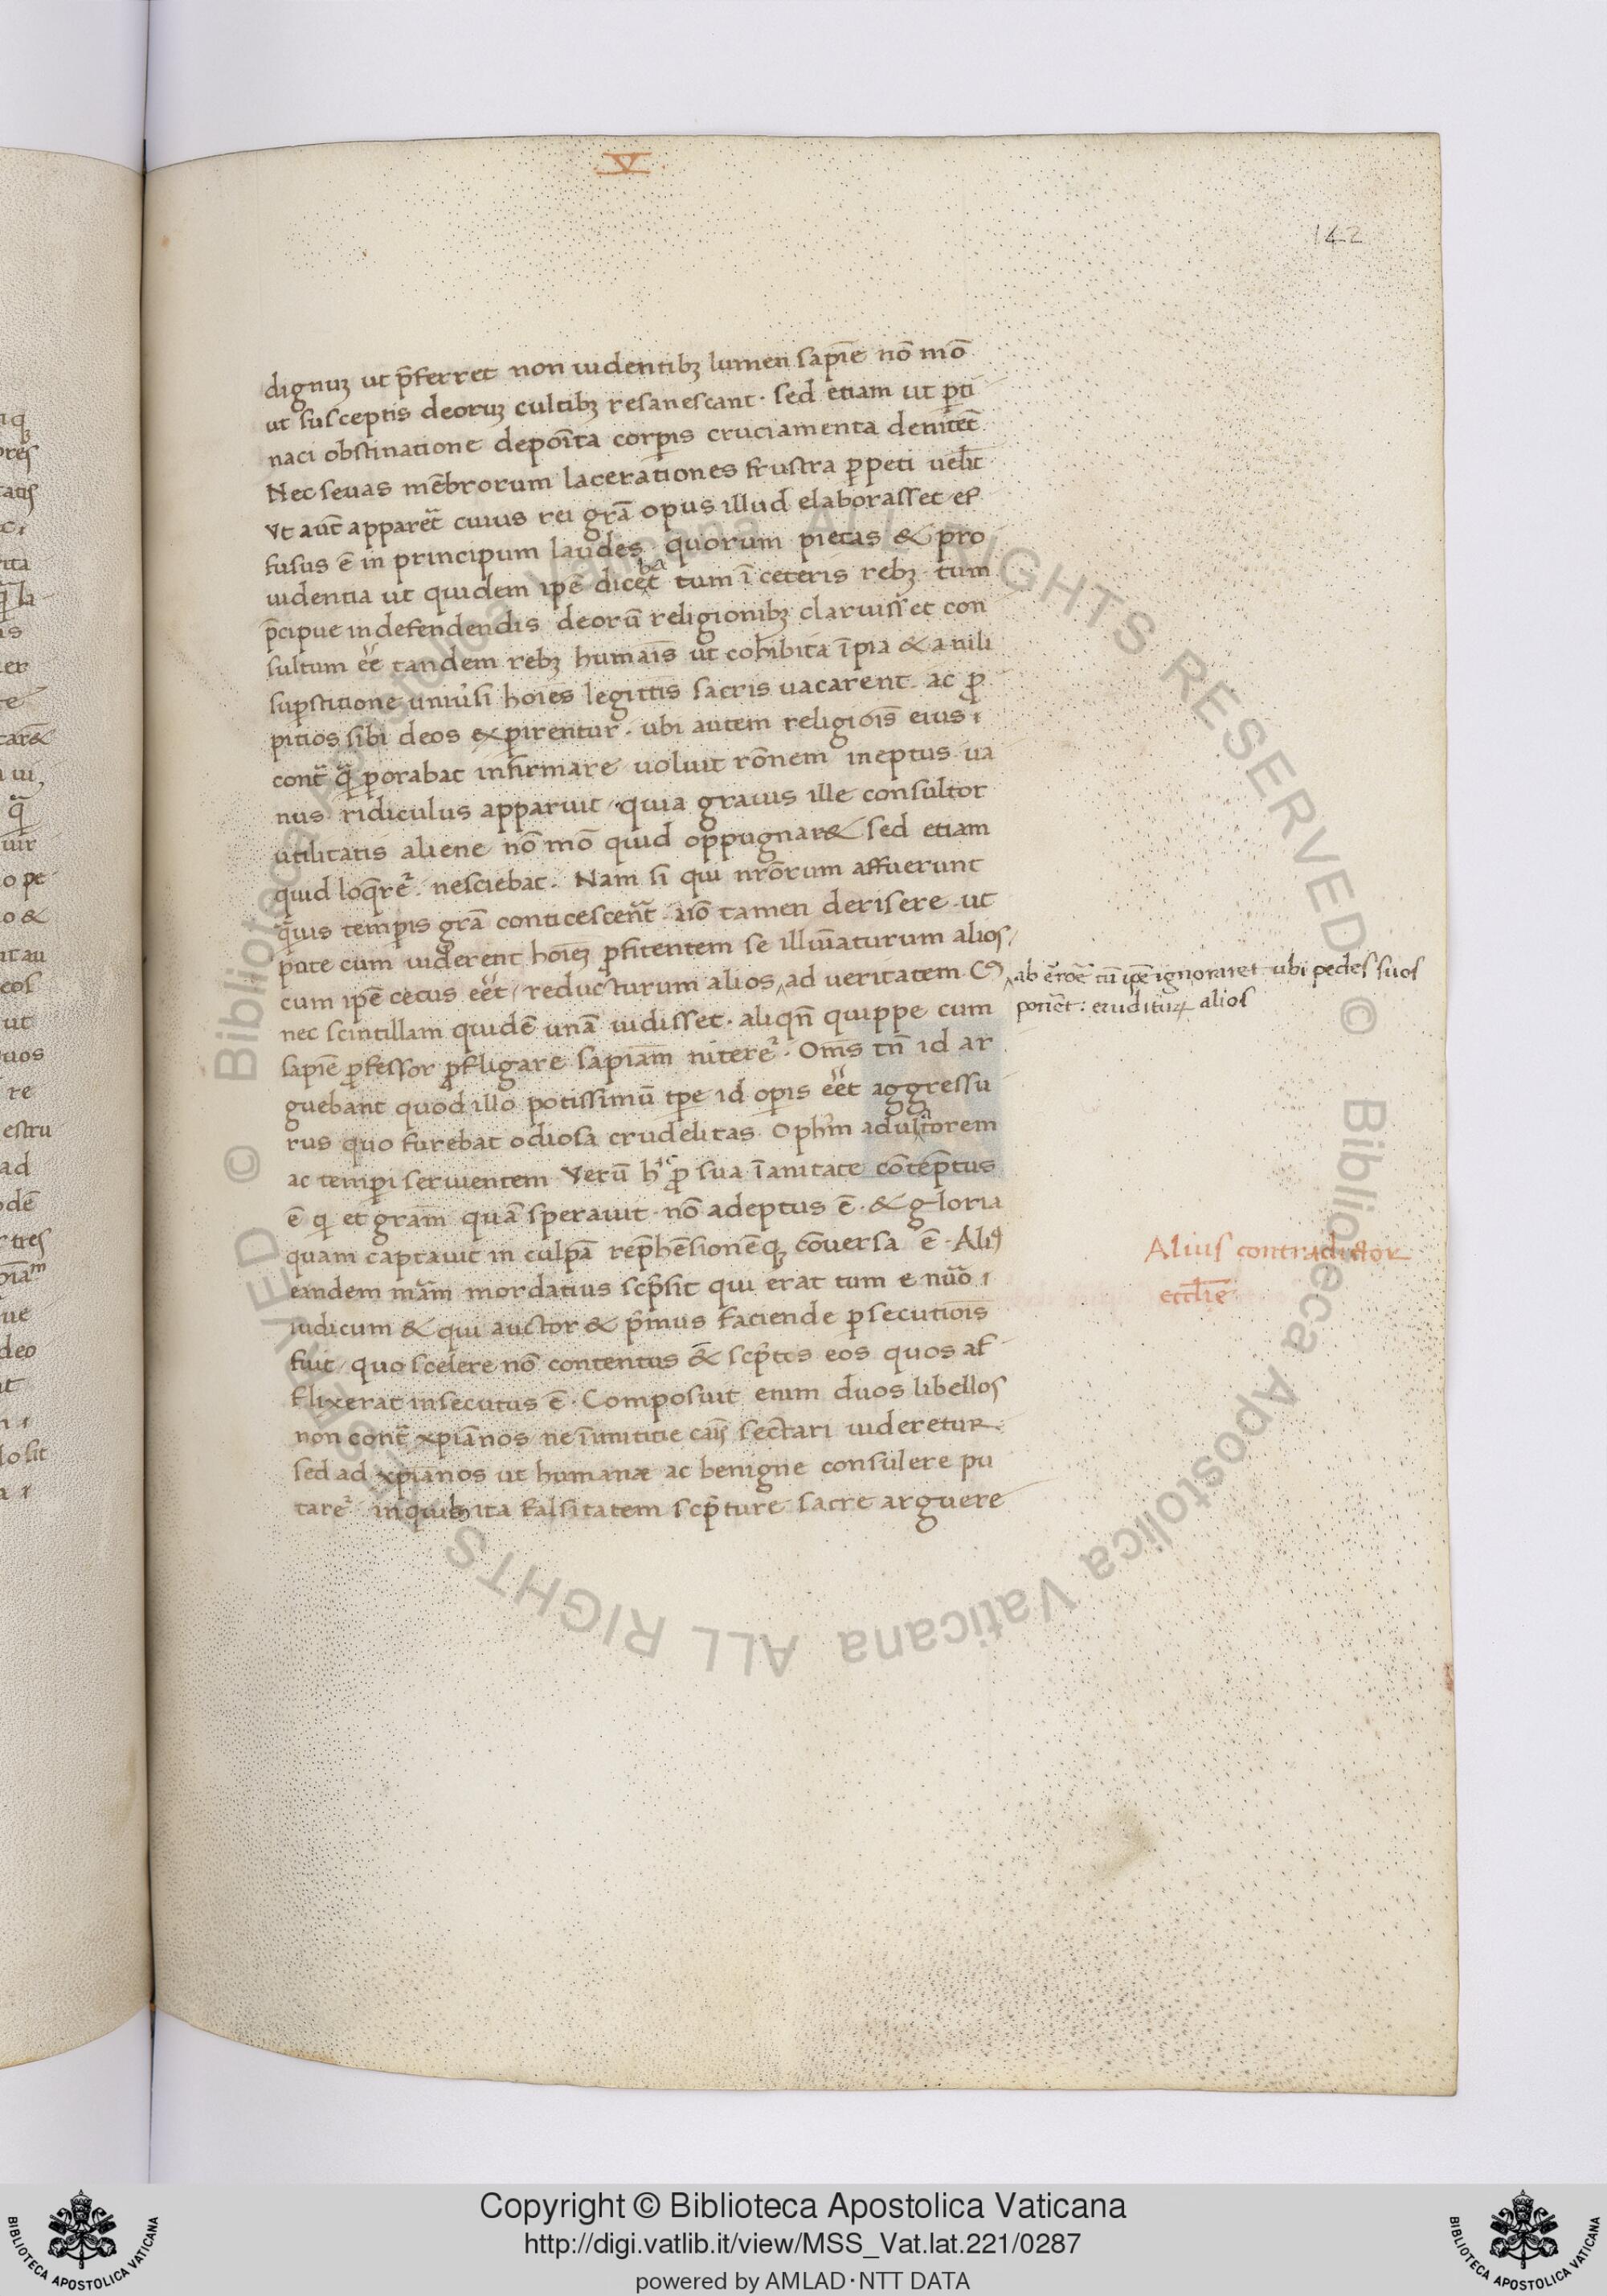 V
142
dignuꝫ ut p̄ferret non uidentibꝫ lumen sapie̅ no̅ mo̅
ut susceptis deoruꝫ cultibꝫ resanescant · sed etiam ut ꝑti
naci obstinatione depoı̅ta corꝑis cruciamenta deuitet̅
Nec seuas me̅brorum lacerationes frustra ꝑpeti uelı̅t
Vt aut̅ apparet̅ cuius rei gr̅a opus illud elaborasset ef
fusus e̅ in principum laudes · quorum pietas & pro
uidentia ut quidem ipe̅ diceba̅t tum ı̅ ceteris rebꝫ tum
p̄cipue in defendendis deoru̅ religionibꝫ claruisset con
sultum ee̅ tandem rebꝫ humaı̅s ut cohibita ı̅pia & anili
suꝑstitione uniu̅si hoı̅es legittı̅s sacris uacarent · ac ꝓ
pitios sibi deos exꝑirentur · ubi autem religiois̅ eius ı
cont̅ q̅ ꝑorabat infirmare uoluit ro̅nem ineptus ua
nus ridiculus apparuit quia grauis ille consultor
utilitatis aliene no̅ mo̅ quid oppugnar& sed etiam
quid loq̅ret · nesciebat · Nam si qui nr̅orum affuerunt
q̅uis temꝑis gr̅a conticescent̅ · aı̅o tamen derisere · ut
pote cum uiderent hoı̅eꝫ ꝓfitentem se illuı̅aturum alios
cum ipe̅ cecus eet̅ / reducturum alios ad ueritatem Cꝯ
ab e̅roe̅ cu̅ ipe̅ ignoraret ubi pedes suos
pone̅t : eruditurꝫ alios
nec scintillam quide̅ una̅ uidisset · aliqn̅ quippe cum
sapie̅ ꝓfessor ꝓfligare sapiam̅ nitere᷑ · Oms̅ tn̅ id ar
guebant quod illo potissimu̅ tꝑe id oꝑis eet̅ aggressu
rus quo furebat odiosa crudelitas · O phm̅ adulatorem
ac temꝑi seruientem Veru̅ hic ꝓ sua ı̅anitate co̅tep̄tus
e̅ q̅ et gram̅ qua̅ sperauit · no̅ adeptus e̅ · & gloria
quam captauit in culpa̅ rep̄he̅sione̅qꝫ co̅uersa e̅ · Aliꝰ
eandem ma̅m mordatius scp̄sit qui erat tum e nu̅o ı
Alius contradictor
eccl̅ie
iudicum & qui auctor & p̄mus faciende ꝑsecutiois̅
fuit / quo scelere no̅ contentus & scp̄tis eos quos af
flixerat insecutus e̅ · Composuit enim duos libellos
non cont̅ xpı̅anos / ne ı̅imicitie caus̅ sectari uideretur
sed ad xpı̅anos ut humanæ ac benigne consulere pu
tare᷑ in quibꝫ ita falsitatem scp̄ture sacre arguere
Copyright © Biblioteca Apostolica Vaticana
http://digi.vatlib.it/view/MSS_Vat.lat.221/0287
powered by AMLAD·NTT DATA
BIBLIOTECA APOSTOLICA VATICANA
BIBLIOTECA APOSTOLICA VATICANA
© Biblioteca Apostolica Vaticana ALL RIGHTS RESERVED
© Biblioteca Apostolica Vaticana ALL RIGHTS RESERVED